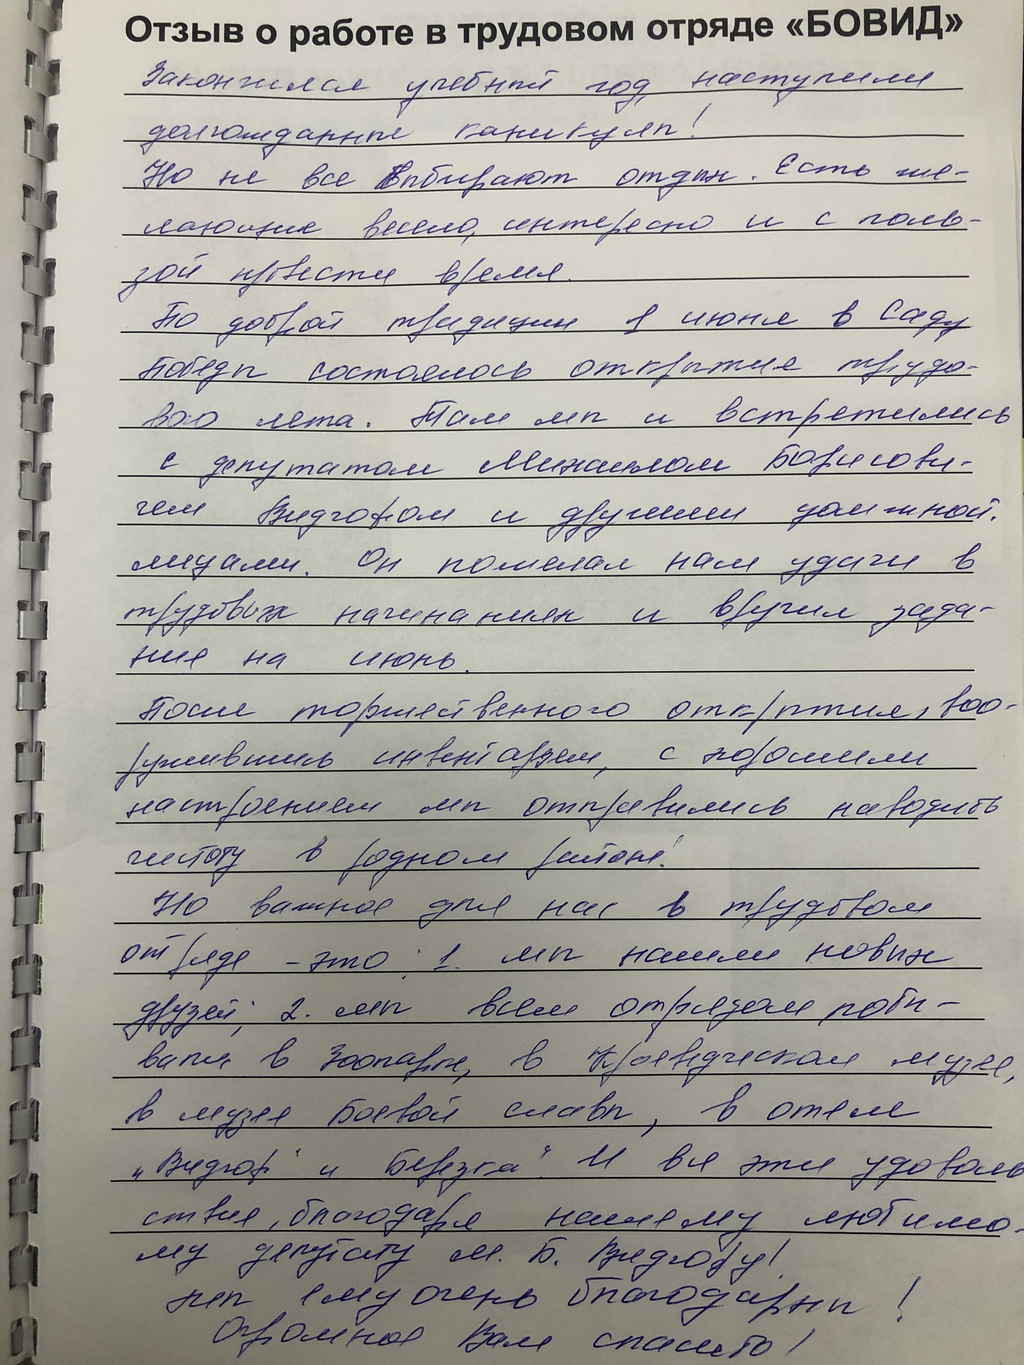 Отзыв о работе в трудовом отряде «БОВИД»
Закончился учебный год, наступили
долгожданные каникулы!
Но не все выбирают отдых. Есть же-
лающие весело, интересно и с поль-
зой провести время.
По доброй традиции 1 июня в Саду
Победы состоялось открытие трудо-
вого лета. Там мы и встретились
с депутатом Михаилом Борисови-
чем Видгофом и другими
лицами. Он пожелал нам удачи в
трудовых начинаниях и вручил зада-
ние на июнь.
После торжественного открытия, воо-
ружившись инвентарем, с хорошим
настроением мы отправились наводить
чистоту в родном районе!
Но важное для нас в трудовом
отряде - это: 1. мы нашли новых
друзей; 2. мы всем отрядом побы-
вали в Зоопарке, в Краеведческом музее,
в музее Боевой славы, в отеле
„Видгоф" и Березка". И все эти удоволь
ствия, благодаря нашему любимо-
му депутату М. Б. Видгофу!
Мы ему очень благодарны!
Огромное Вам спасибо!